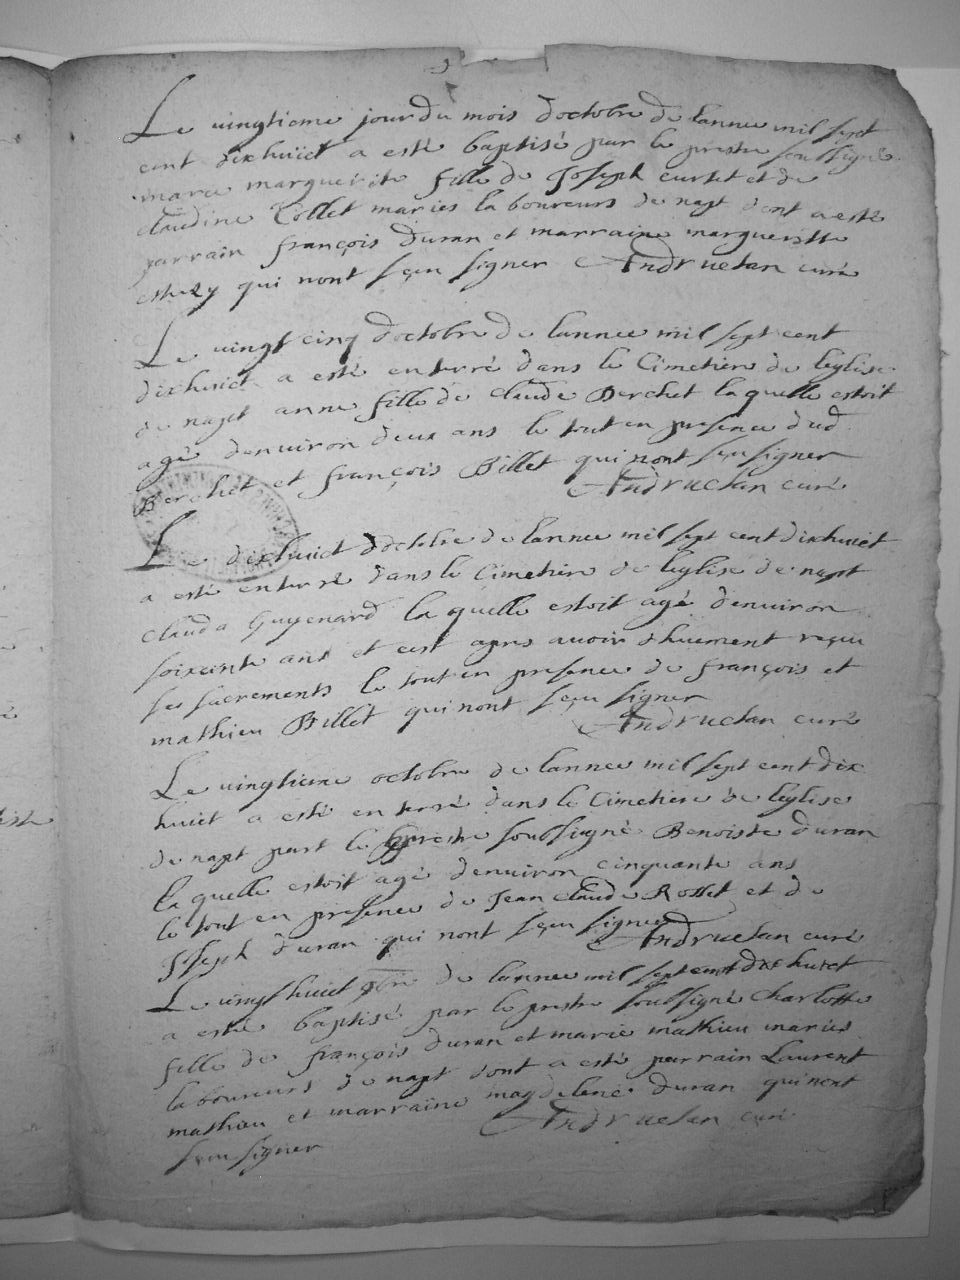 Le vingtieme jour du mois doctobre de lannee mil sept
cent dixhuict a esté baptisé par le prestre soubsigné
marie marguerite fille de Joseph curtet et de
claudine Collet mariés laboureurs de napt dont a esté
parrain françois duran et marraine margueritte
qui nont sçeu signer Andruetan curé
Le vingt cinq doctobre de lannee mil sept cent
dixhuict a esté enterré dans le Cimetiere de leglise
de napt anne fille de claude Berchet laquelle estoit
agé denuiron deux ans le tout en presence dud
Berchet et françois Billet qui nont sçeu signer
Andruetan curé
Le dixhuict doctobre de lannee mil sept cent dixhuict
a esté enterré dans le Cimetiere de leglise de napt
clauda Guyenard la quelle estoit agé denuiron
soixante ans et cest apres auoir dhuement reçeu
ses sacrements le tout en presence de françois et
mathieu Billet qui nont sçeu signer
Andruetan curé
Le vingtieme octobre de lannee mil sept cent dix
huict a esté enterré dans le Cimetiere de leglise
de napt part le prestre soubsigné Benoiste duran
la quelle estoit agé denuiron cinquante ans
le tout en presence de Jean claude Rosset et de
Joseph duran qui nont sçeu signer Andruetan curé
Le vingt huict de lannee mil sept cent dixhuict
a esté baptisé par le prestre soubsigné Charlotte
fille de françois duran et marie mathieu mariés
laboureurs de napt dont a esté parrain Laurent
mathieu et marraine magdelene duran qui nont
sçeu signer Andruetan curé